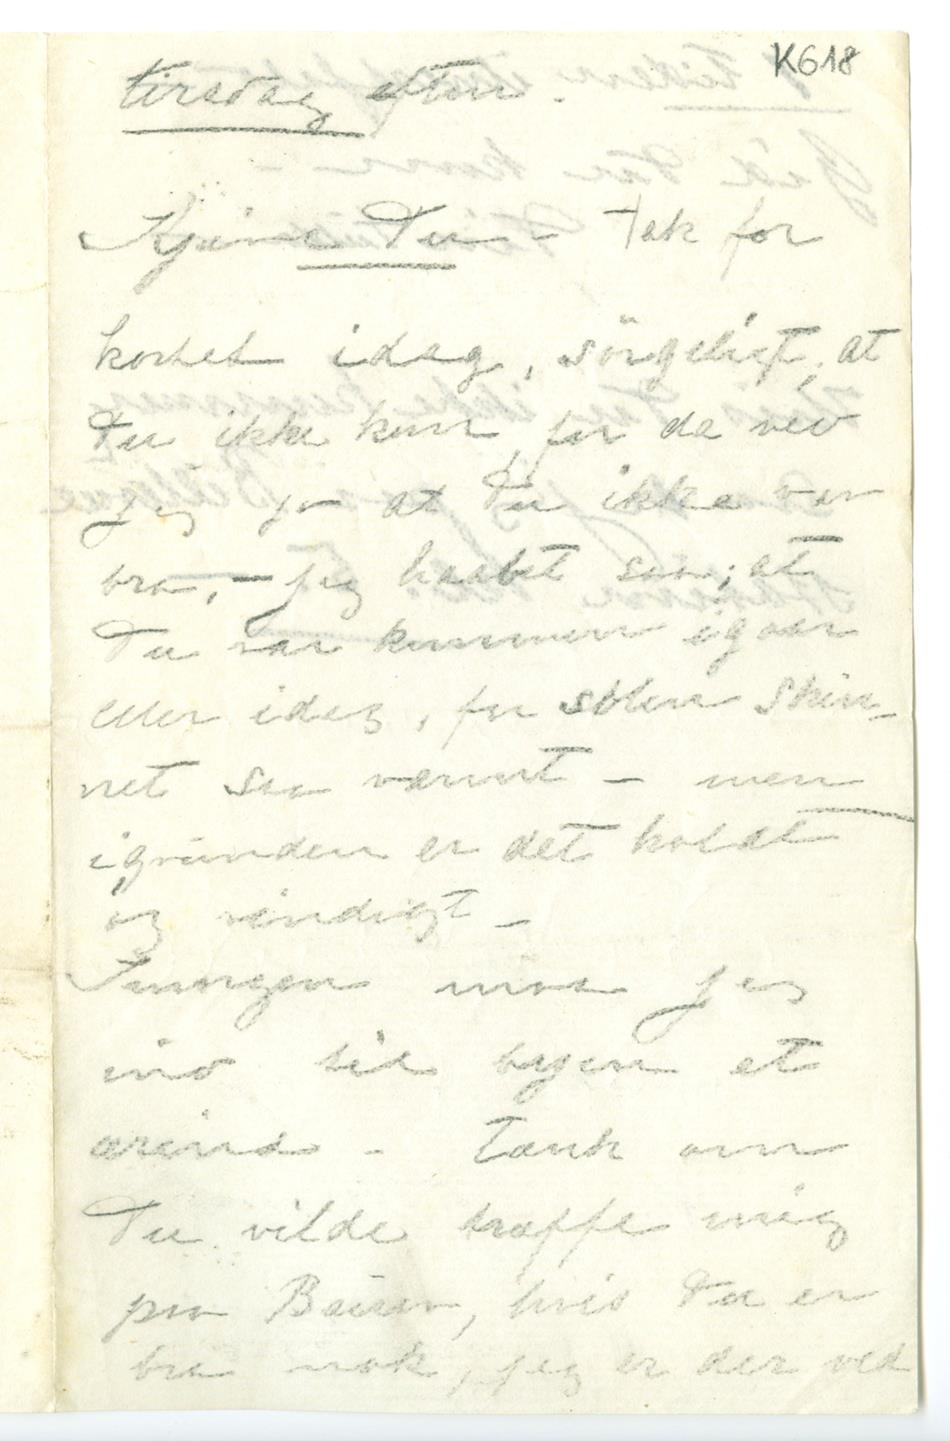 K618
tirsdag aften.
Kjære Du – Tak for
kortet idag, sörgeligt, at
Du ikke kom, for da ved
jeg jo at Du ikke var
bra, – jeg haabet saa, at
Du var kommen igaar
eller idag, for solen skin-
net saa varmt – men
igrunden er det koldt
og vindigt –
Imorgen maa jeg
ind til byen et
ærind – Tænk om
Du vilde træffe mig
paa Bazaren, hvis Du er
bra nok, jeg er der ved